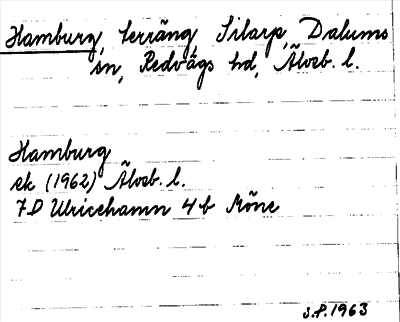 Hamburg, terräng Silarp, Dalums
sn, Redvägs hd, Älvsb. l.
Hamburg
ek (1962) Älvsb. l.
7D Ulricehamn 4b Möne
S.P. 1963